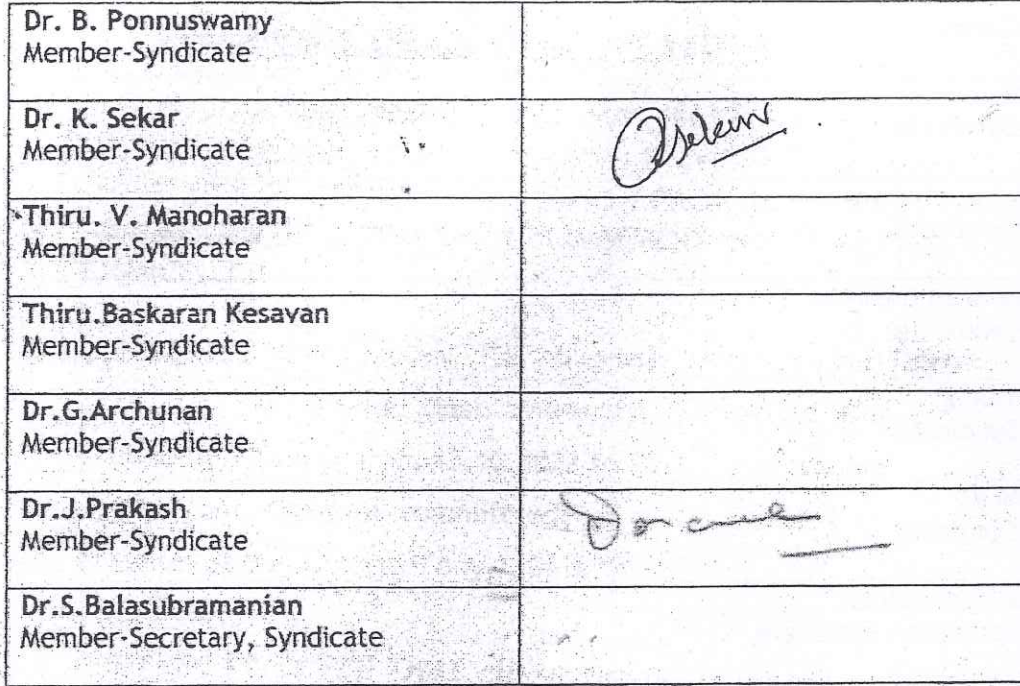 Dr. B. Ponnuswamy
Member-Syndicate
Dr. K. Sekar
Member-Syndicate
Thiru. V. Manoharan
Member-Syndicate
Thiru.Baskaran Kesavan
Member-Syndicate
Dr.G.Archunan
Member-Syndicate
Dr.J.Prakash
Member-Syndicate
Dr.S.Balasubramanian
Member-Secretary, Syndicate